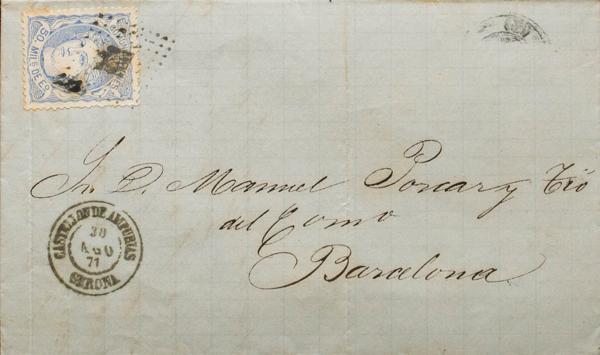 50 MILS DE Eo
Sr. D. Manuel Porcar y Tió
del Comо
Barcelona
CASTELLON DE AMPURIAS
30
AGO
71
GERONA